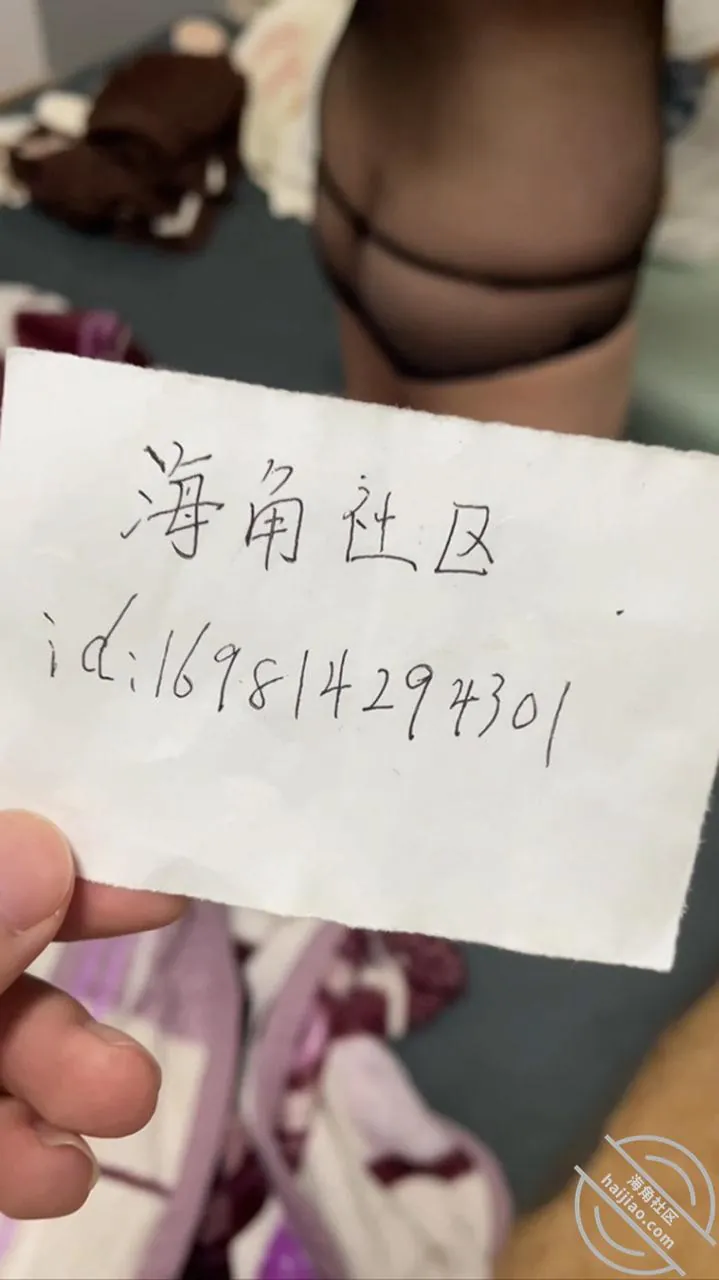 海角社区
id:169814294301
海角社区
haijiao.com